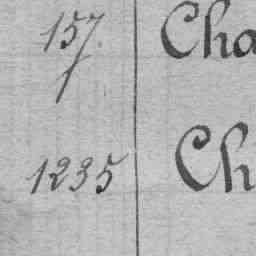 157. Cha
1235 Ch